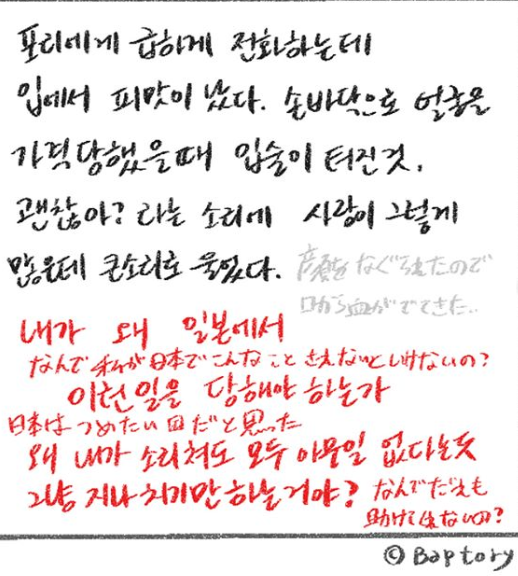 포리에게 급하게 전화하는데
입에서 피맛이 났다. 손바닥으로 얼굴을
가격당했을때 입술이 터진것.
괜찮아? 라는 소리에 사람이 그렇게
많은데 큰소리로 울었다.
顔をなぐられたので
口から血がでてきた..
내가 왜 일본에서
なんで私が日本でこんなことされないといけないの?
이런일을 당해야 하는가
日本はつめたい国だと思った
왜 내가 소리쳐도 모두 아무일 없다는듯
그냥 지나치기만 하는거야?
なんでだれも
助けてくれないの?
©Baptory